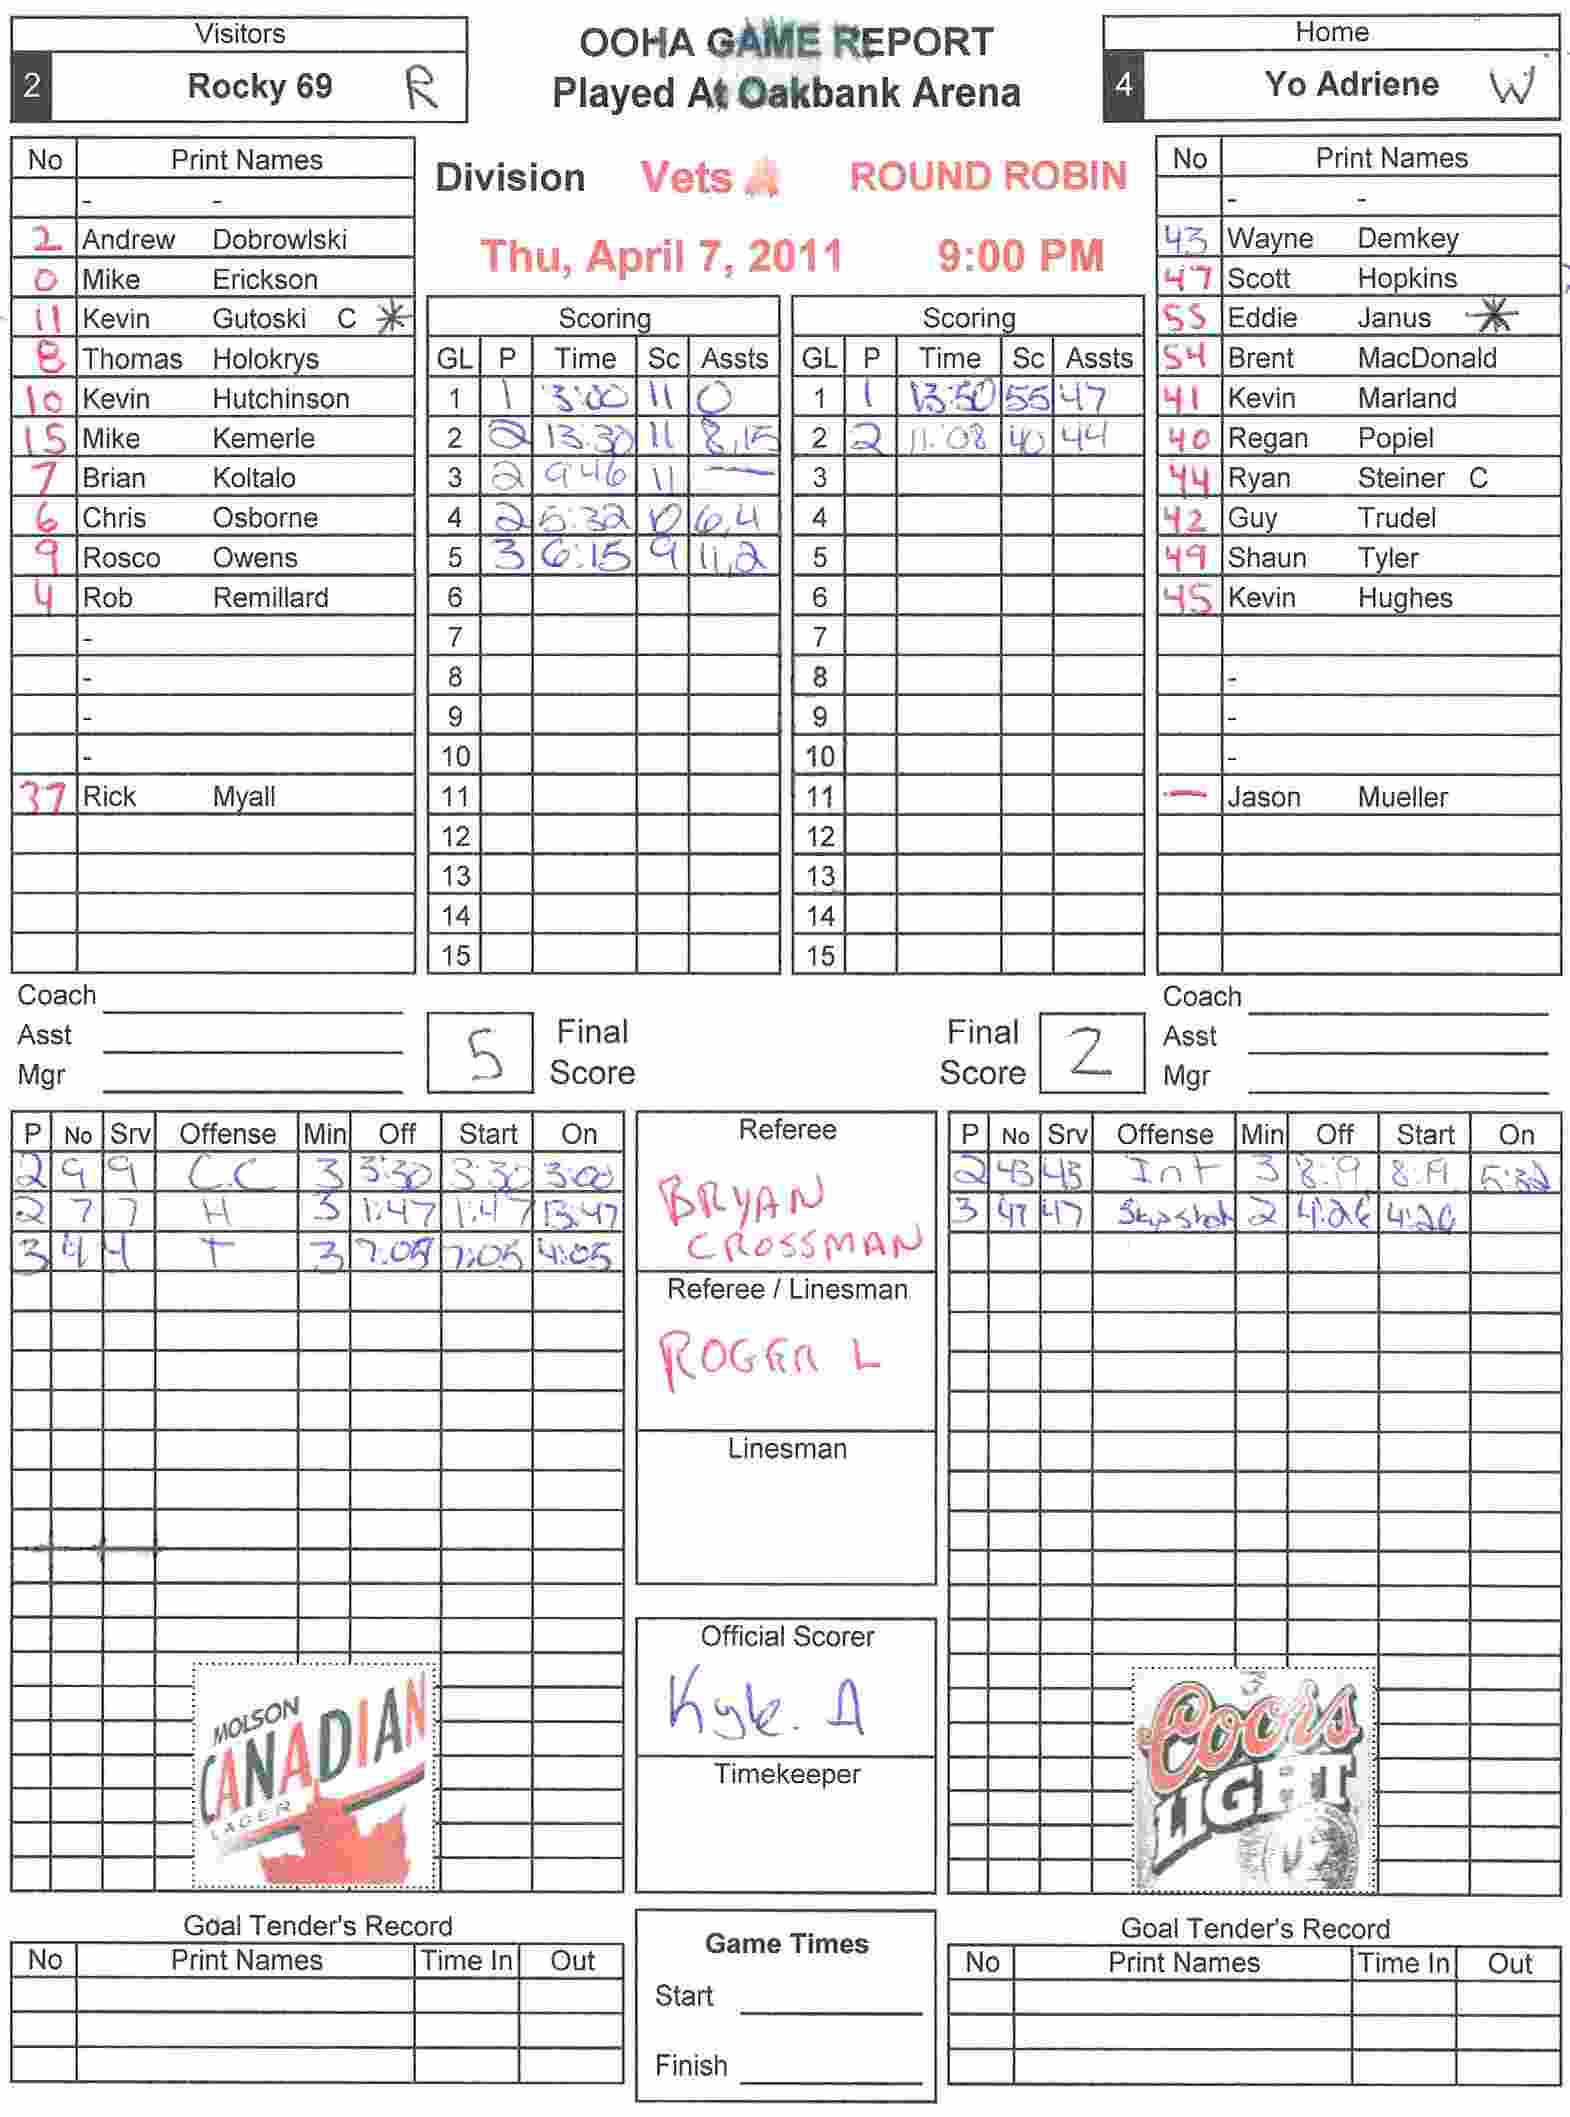 Visitors
2 Rocky 69 R
OOHA GAME REPORT
Played At Oakbank Arena
Home
4 Yo Adriene W
Division Vets ROUND ROBIN
Thu, April 7, 2011 9:00 PM
No Print Names
- -
2 Andrew Dobrowlski
0 Mike Erickson
11 Kevin Gutoski C *
8 Thomas Holokrys
10 Kevin Hutchinson
15 Mike Kemerle
7 Brian Koltalo
6 Chris Osborne
9 Rosco Owens
4 Rob Remillard
-
-
-
-
37 Rick Myall
Scoring
GL P Time Sc Assts
1 1 3:00 11 0
2 2 13:30 11 8,15
3 2 9:46 11 —
4 2 5:32 10 6,4
5 3 6:15 9 11,2
6
7
8
9
10
11
12
13
14
15
Scoring
GL P Time Sc Assts
1 1 13:50 55 47
2 2 11:08 40 44
3
4
5
6
7
8
9
10
11
12
13
14
15
No Print Names
- -
43 Wayne Demkey
47 Scott Hopkins
55 Eddie Janus *
54 Brent MacDonald
41 Kevin Marland
40 Regan Popiel
44 Ryan Steiner C
42 Guy Trudel
49 Shaun Tyler
45 Kevin Hughes
-
-
-
-
— Jason Mueller
Coach
Asst
Mgr
5 Final Score
Final Score 2
Coach
Asst
Mgr
P No Srv Offense Min Off Start On
2 9 9 C.C 3 3:30 3:30 3:00
2 7 7 H 3 1:47 1:47 13:47
3 4 4 T 3 7:05 7:05 4:05
Referee
BRYAN
CROSSMAN
Referee / Linesman
ROGER L
Linesman
Official Scorer
Kyle. A
Timekeeper
P No Srv Offense Min Off Start On
2 43 43 Int 3 8:19 8:19 5:32
3 47 47 2 4:26 4:26
MOLSON
CANADIAN
LAGER
Coors
LIGHT
Goal Tender's Record
No Print Names Time In Out
Game Times
Start
Finish
Goal Tender's Record
No Print Names Time In Out